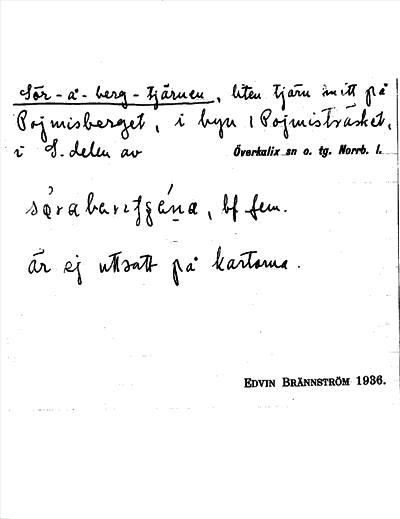 Sör-å-berg-tjärnen, liten tjärn mitt på
Pojmisberget, i byn Pojmisträsket,
i S. delen av Överkalix sn o. tg. Norrb. l.
bf fem.
är ej utsatt på kartorna.
EDVIN BRÄNNSTRÖM 1936.